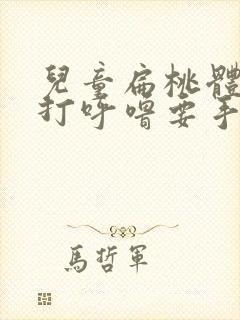 兒童扁桃體
打呼嚕要手
馬哲軍